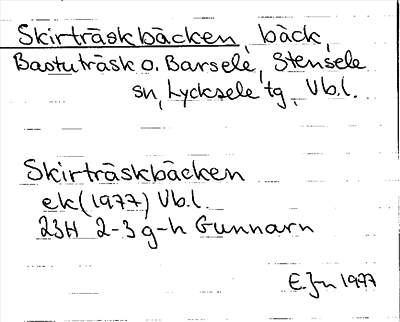 Skirträskbäcken, bäck,
Bastuträsk o. Barsele, Stensele
sn, Lycksele tg, Vb.l.
Skirträskbäcken
ek (1977) Vb.l.
23H 2-3 g-h Gunnarn
E.Jn 1977